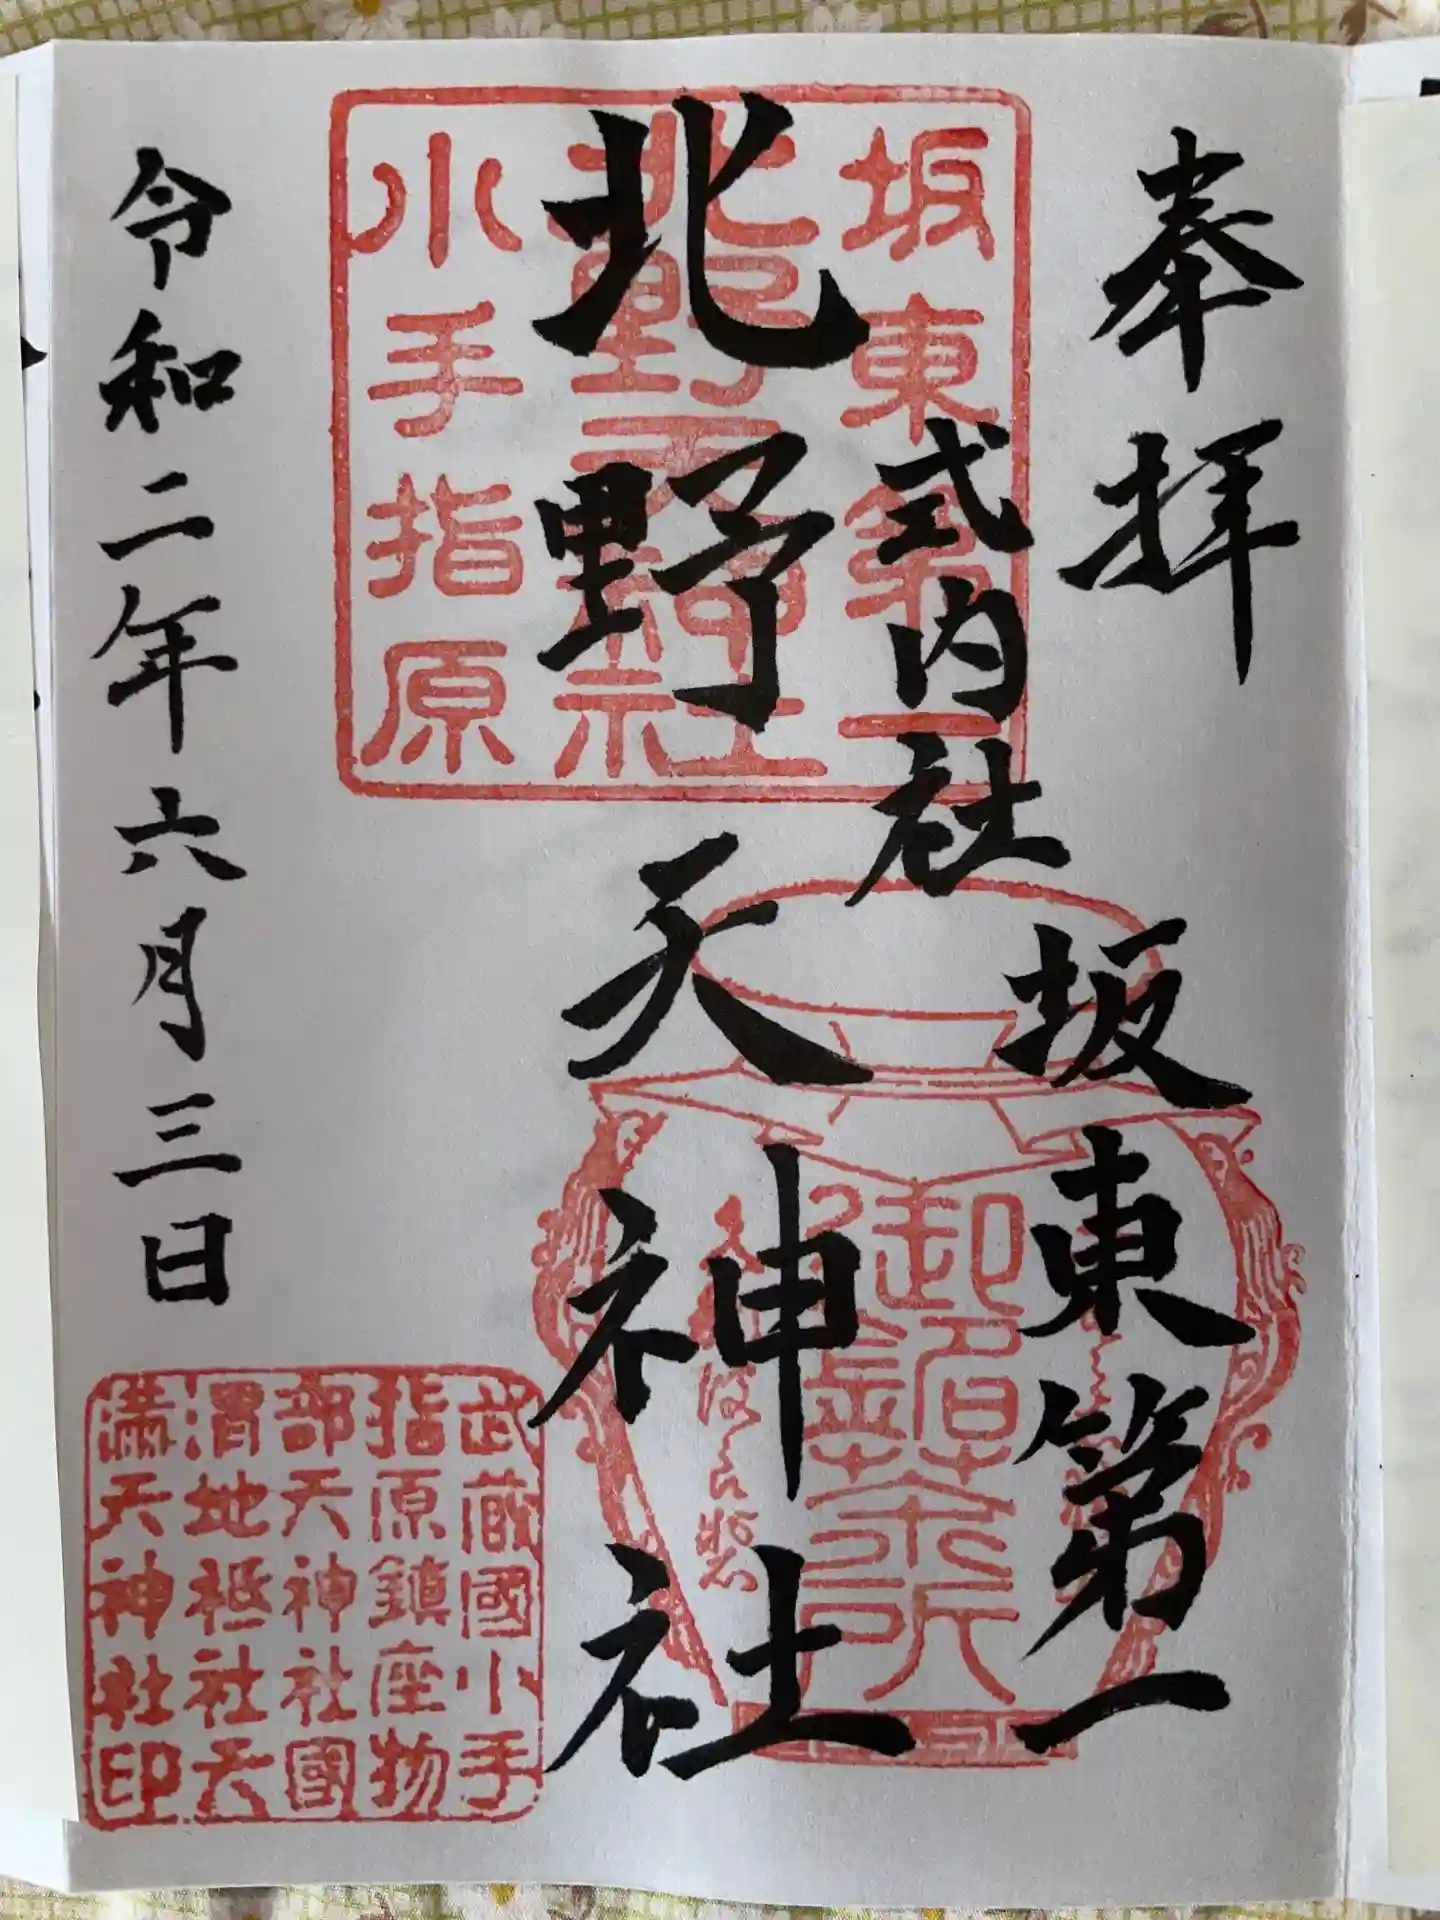 奉拝
坂東第一
式内社
北野天神社
令和二年六月三日
坂東第一
北野天神社
小手指原
武蔵國小手
指原鎮座物
部天神社國
渭地祗社天
満天神社印